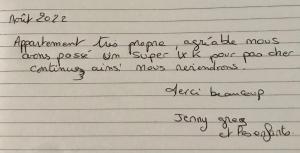 Août 2022
Appartement très propre, agréable nous
avons passé un super W.K pour pas cher
continuez ainsi nous reviendrons.
Merci beaucoup
Jenny greg
et les enfants.